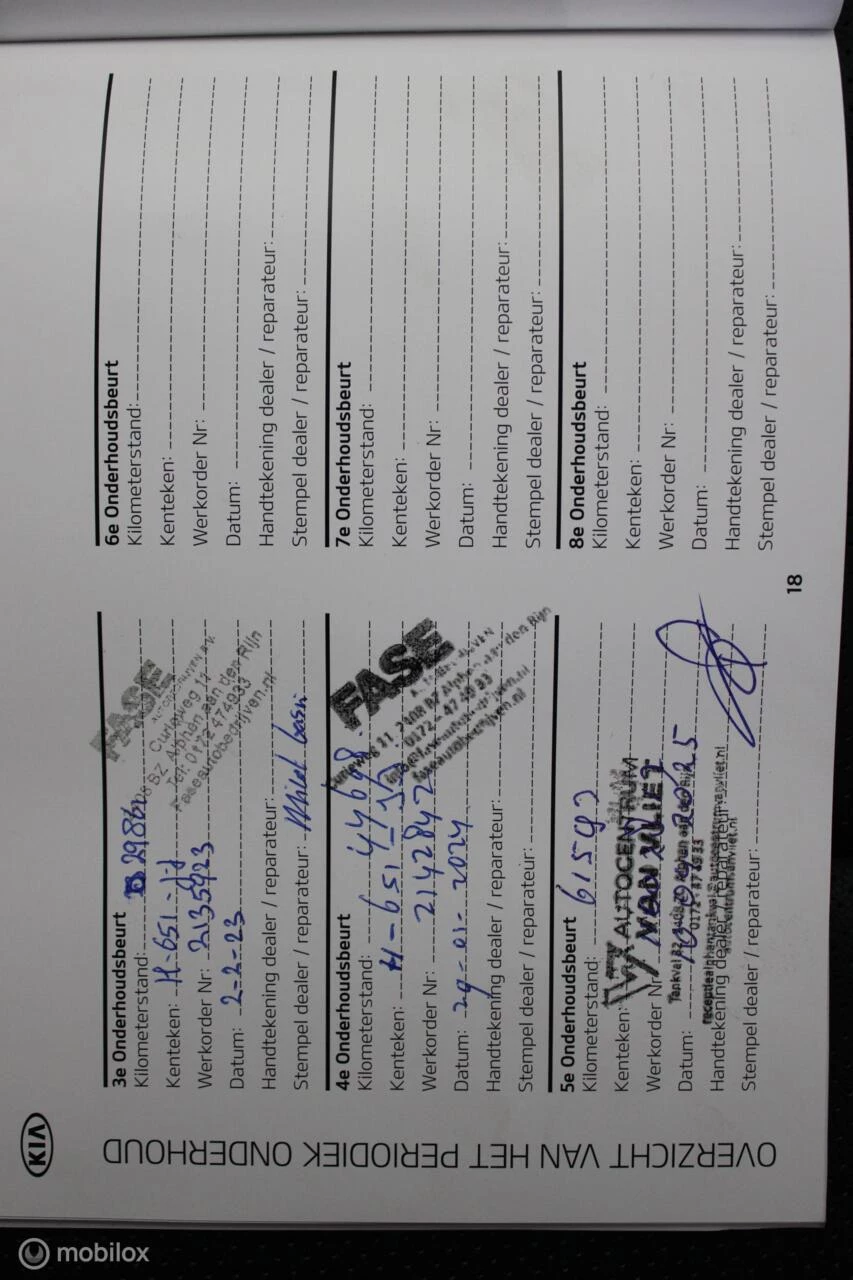 KIA
OVERZICHT VAN HET PERIODIEK ONDERHOUD
3e Onderhoudsbeurt
Kilometerstand: 29862
Kenteken: H-651-JJ
Werkorder Nr: 2135923
Datum: 2-2-23
Handtekening dealer / reparateur:
Stempel dealer / reparateur:
FASE
AUTOBEDRIJVEN B.V.
Curieweg 11
2408 BZ Alphen aan den Rijn
Tel: 0172 474933
faseautobedrijven.nl
4e Onderhoudsbeurt
Kilometerstand: 44698
Kenteken: H-651-JJ
Werkorder Nr: 2142847
Datum: 29-01-2024
Handtekening dealer / reparateur:
Stempel dealer / reparateur:
FASE
Curieweg 11, 2408 BZ Alphen aan den Rijn
0172 - 47 49 33
faseautobedrijven.nl
5e Onderhoudsbeurt
Kilometerstand: 61593
Kenteken:
Werkorder Nr:
Datum: 2025
Handtekening dealer / reparateur:
Stempel dealer / reparateur:
AUTOCENTRUM
VAN VLIET
Tankval 32, 2408 Alphen aan den Rijn
0172 - 47 49 33
receptiealphentankval@autocentrumvanvliet.nl
autocentrumvanvliet.nl
6e Onderhoudsbeurt
Kilometerstand:
Kenteken:
Werkorder Nr:
Datum:
Handtekening dealer / reparateur:
Stempel dealer / reparateur:
7e Onderhoudsbeurt
Kilometerstand:
Kenteken:
Werkorder Nr:
Datum:
Handtekening dealer / reparateur:
Stempel dealer / reparateur:
8e Onderhoudsbeurt
Kilometerstand:
Kenteken:
Werkorder Nr:
Datum:
Handtekening dealer / reparateur:
Stempel dealer / reparateur:
18
mobilox